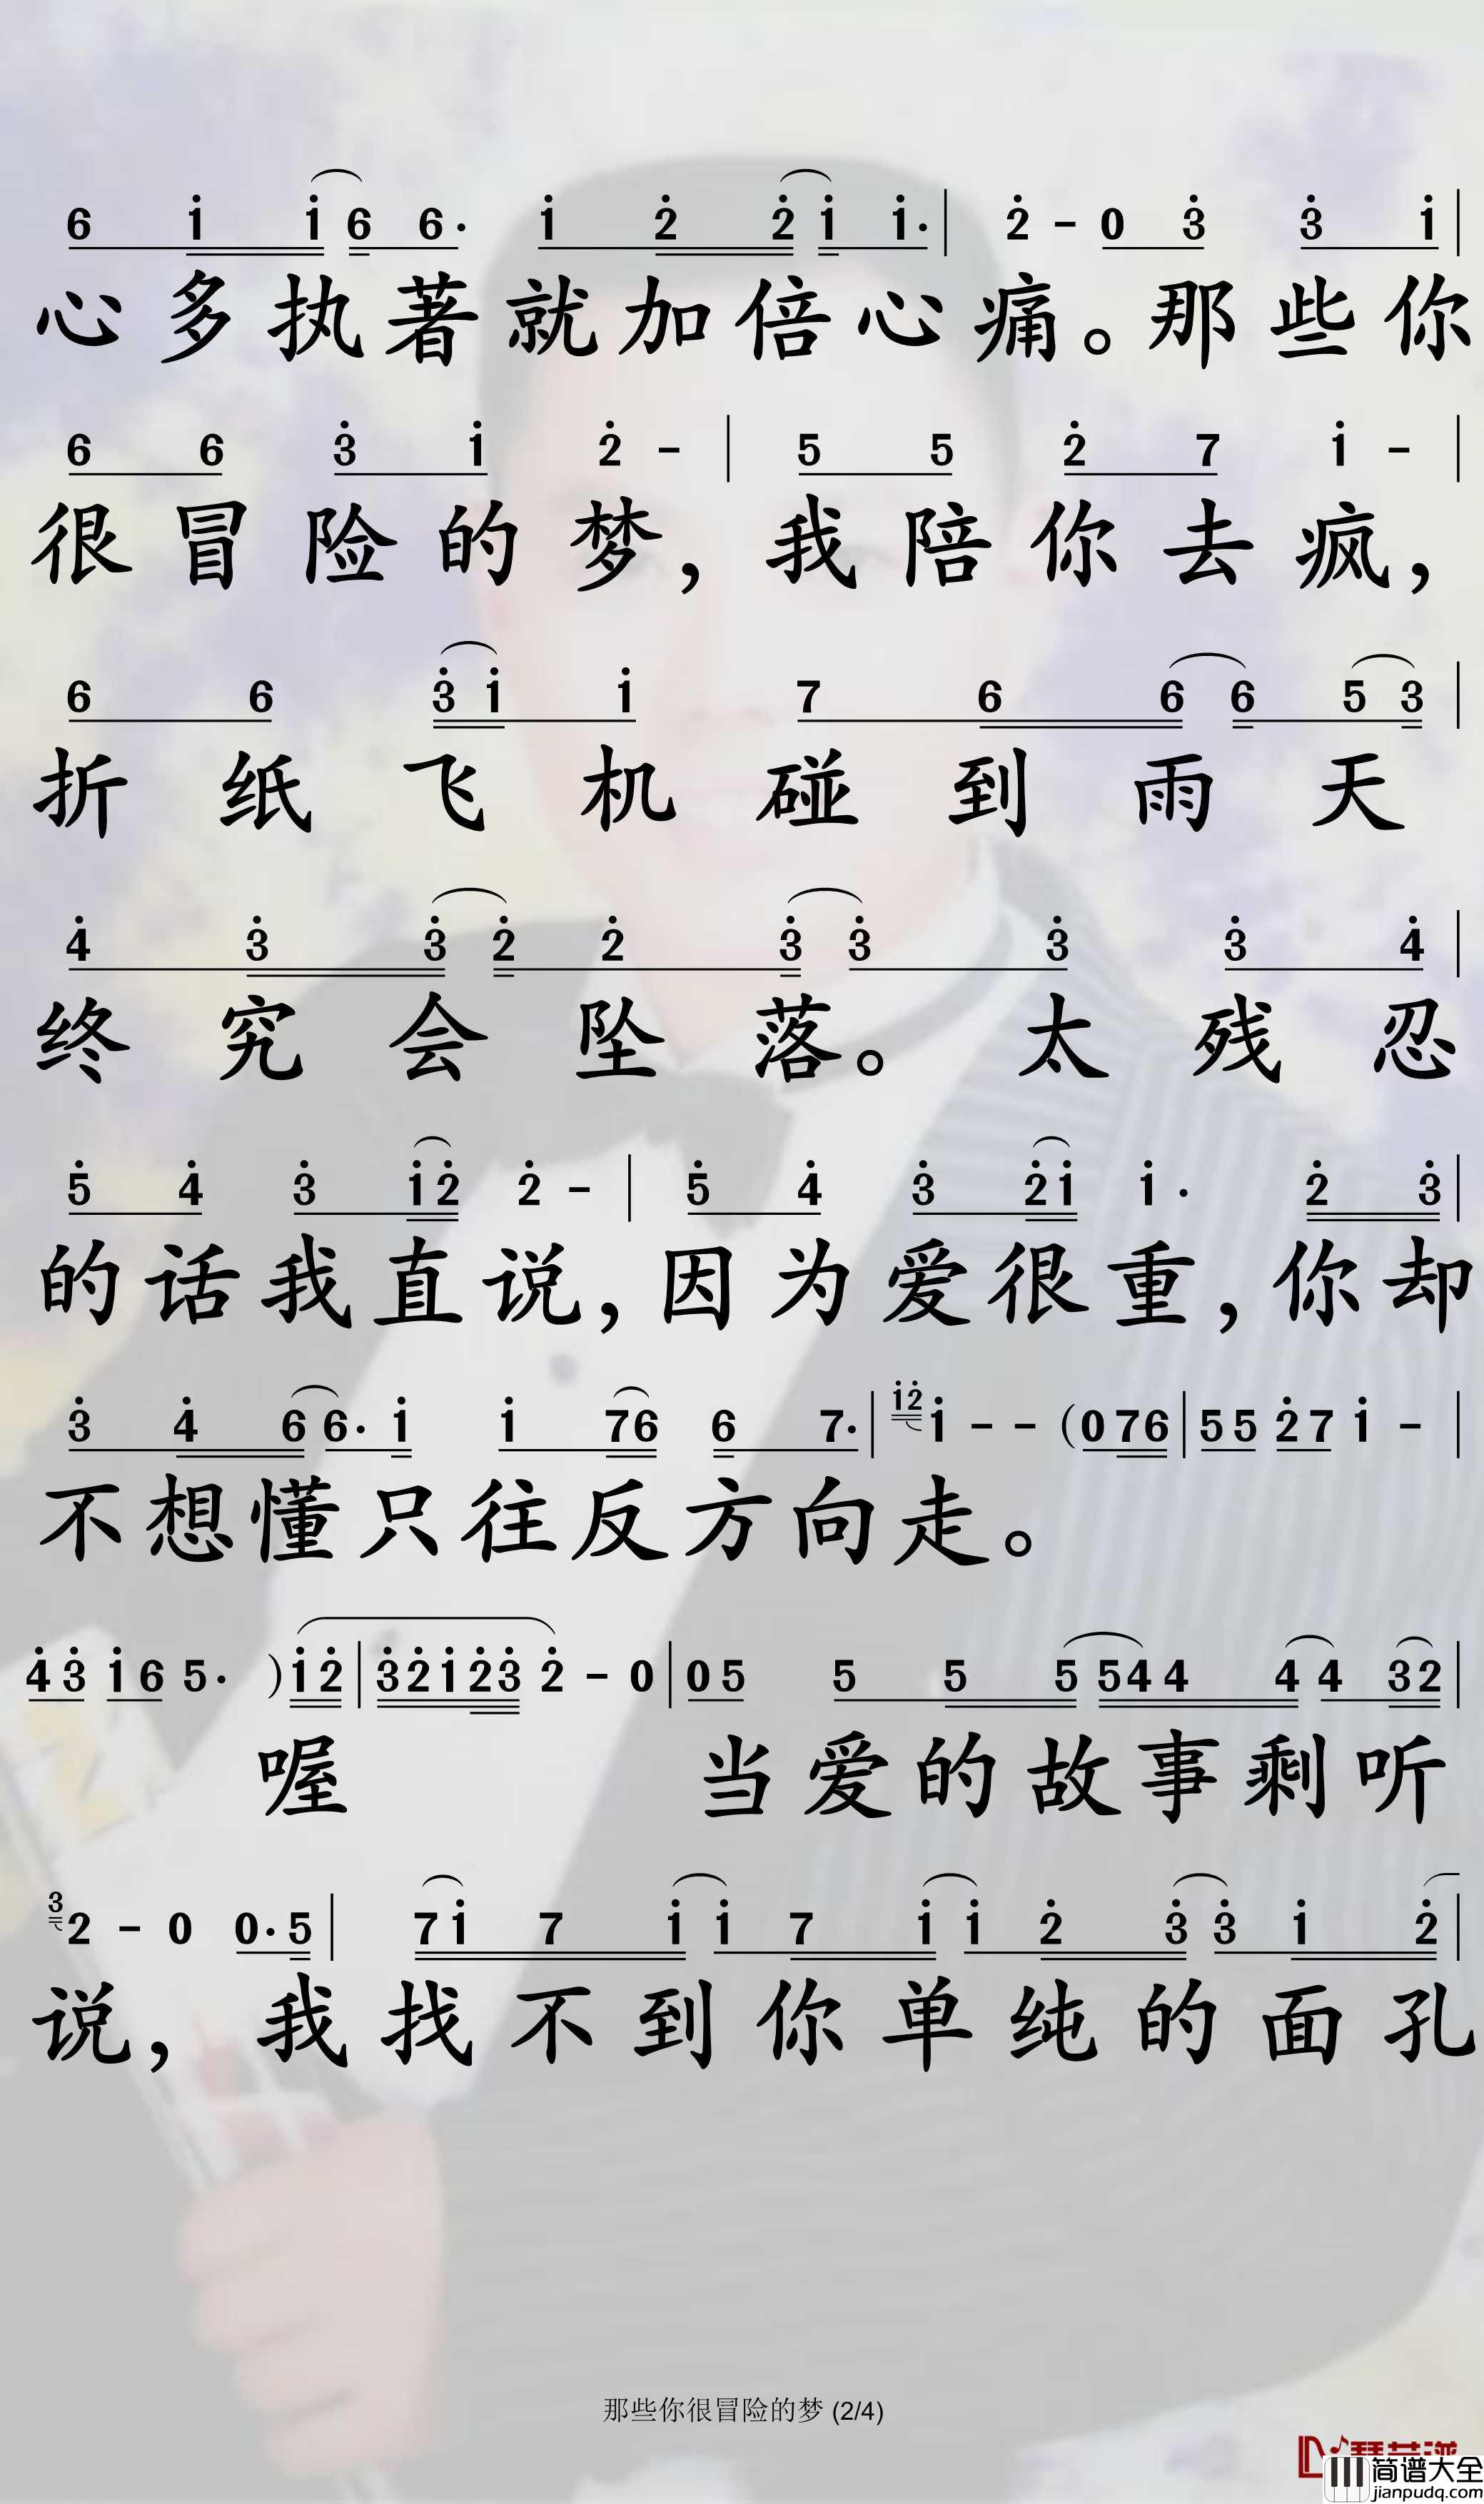 6 i i 6 6· i 2 2 i i· | 2 - 0 3 3 i |
心多执著就加倍心痛。那些你
6 6 3 i 2 - | 5 5 2 7 i - |
很冒险的梦，我陪你去疯，
6 6 3 i i 7 6 6 6 5 3 |
折纸飞机碰到雨天
4 3 3 2 2 3 3 3 3 4 |
终究会坠落。太残忍
5 4 3 i 2 2 - | 5 4 3 2 i i · 2 3 |
的话我直说，因为爱很重，你却
3 4 6 6· i i 7 6 6 7· | i 2 i - - (0 7 6 | 5 5 2 7 i - |
不想懂只往反方向走。
4 3 i 6 5· ) i 2 | 3 2 i 2 3 2 - 0 | 0 5 5 5 5 5 4 4 4 4 3 2 |
喔 当爱的故事剩听
3 2 - 0 0· 5 | 7 i 7 i i 7 i i 2 3 3 i 2 |
说，我找不到你单纯的面孔
那些你很冒险的梦 (2/4)
简谱大全
jianpudq.com